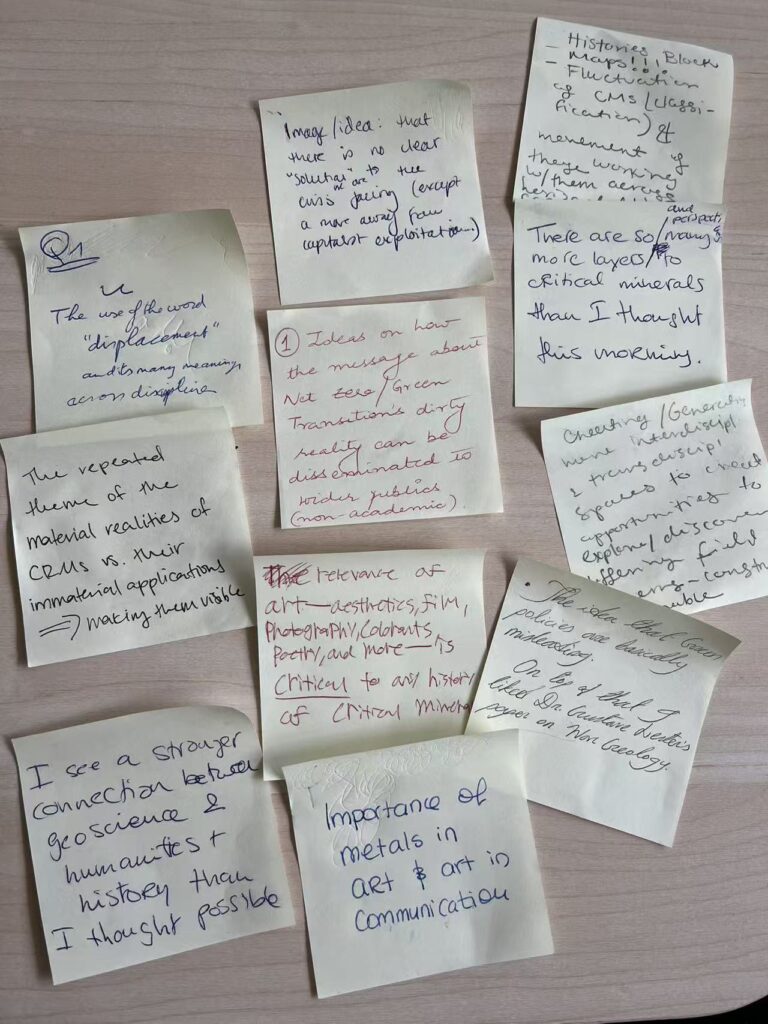 - Histories, Block
- Maps!!!
- Fluctuation
of CMs (classi-
fication) &
movement of
these working
w/ them across
Image/idea: that
there is no clear
"solution" to the
crisis we are facing (except
a move away from
capitalist exploitation...)
Q1
The use of the word
"displacement"
and its many meanings
across discipline
There are so many
and perspectives
more layers to
critical minerals
than I thought
this morning.
① Ideas on how
the message about
Net Zero/Green
Transition's dirty
reality can be
disseminated to
wider publics
(non-academic).
The repeated
theme of the
material realities of
CRMs vs. their
immaterial applications
⇒ making them visible
Creating/Generating
more interdiscipl
& transdiscipl
spaces to create
opportunities to
explore/discover
differing field
relevance of
art—aesthetics, film,
Photography, Colorants,
Poetry, and more—is
critical to any history
of Critical Mineral
• The idea that Green
policies are basically
misleading.
On top of that I
liked Dr.
paper on War Geology.
I see a stronger
connection between
geoscience &
humanities +
history than
I thought possible
Importance of
metals in
ART & art in
communication